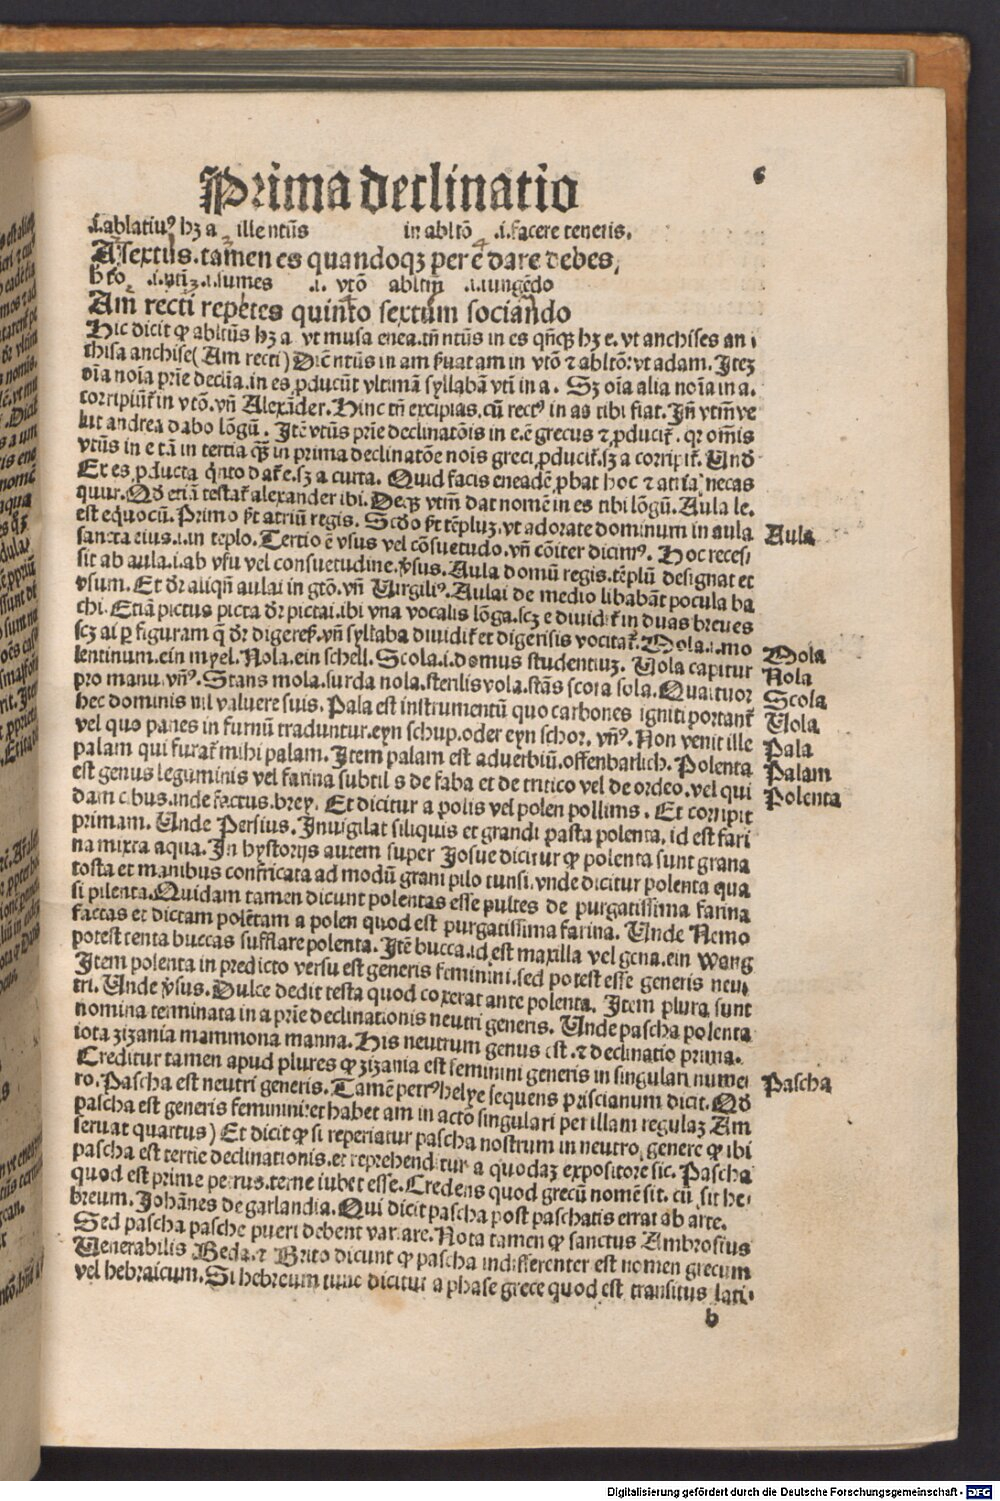 Prima declinatio
6
.i.ablatiuꝰ hꝫ a ille ntũs in abltõ .i.facere teneris.
A sextus.tamen es quandoqꝫ per e dare debes,
.i.sumes .i. vtõ abltiũ .i.iungẽdo
Am recti repetes quinto sextum sociando
Hic dicit ꝙ abltũs hꝫ a vt musa enea.tñ ntũs in es qñqꝫ hꝫ e. vt anchises an
chisa anchise(Am recti)Dicẽ ntũs in am ꝑuat am in vtõ ⁊ abltõ:vt adam. Itẽꝫ
oĩa noĩa prie declĩa.in es ꝓducũt vltimã syllabã vti in a. Sꝫ oĩa alia noĩa in a.
corripiũt̃ in vtõ.vñ Alexãder.Hinc tñ excipias.cũ rectꝰ in as tibi fiat.Iñ vtm̃ ve
lut andrea dabo lõgũ. Itẽ vtũs prie declinatõis in e.ẽ grecus ⁊ ꝓducit̃. qꝛ om̃is
vtũs in e tã in tertia qꝫ in prima declinatõe nois greci ꝓducit̃.sꝫ a corripit̃. Vnď
Et es ꝓducta qnto dat̃ e.sꝫ a curta. Quid facis eneadẽ ꝓbat hoc ⁊ atria necas
quur.Qď etiã testat̃ alexander ibi. Deqꝫ vtm̃ dat nomẽ in es tibi lõgũ. Aula le.
est equocũ. Primo ꝑt atriũ regis. Scďo ꝑt tẽpluꝫ.vt adorate dominum in aula
sancta eius.i.in teplo. Tertio ẽ vsus vel cõsuetudo.vñ cõiter dicimꝰ. Hoc reces/
sit ab aula.i.ab vsu vel consuetudine.ṽsus.Aula domũ regis.tẽplũ designat et
vsum. Et ďr aliqñ aulai in gtõ.vñ Virgiliꝰ.Aulai de medio libabãt pocula ba
chi.Etiã pictus picta ďr pictai.ibi vna vocalis lõga.scꝫ e diuidit̃ in duas breues
scꝫ ai ꝑ figuram q̃ ďr digeresꝭ.vñ syllaba diuidit̃ et digerisis vocitat̃. Mola.i.mo
lentinum.ein myel.Nola.ein schell.Scola.i.domus studentiuꝫ. Vola capitur
pro manu.vñꝰ.Stans mola.surda nola.sterilis vola.stãs scola sola.Quattuor
hec dominis nil valuere suis. Pala est instrumentũ quo carbones igniti portant̃
vel quo panes in furnũ traduntur.eyn schup.oder eyn schor. vñꝰ. Non venit ille
palam qui furat̃ mihi palam. Item palam est aduerbiũ.offenbarlich. Polenta
est genus leguminis vel farina subtilis de faba et de tritico vel de ordeo.vel qui
dam cibus.inde factus.brey. Et dicitur a polis vel polen pollinis. Et corripit
primam. Vnde Persius. Inuigilat siliquis et grandi pasta polenta.id est fari
na mixta aqua.In hystorijs autem super Josue dicitur ꝙ polenta sunt grana
tosta et manibus confricata ad modũ grani pilo tunsi.vnde dicitur polenta qua
si pilenta.Quidam tamen dicunt polentas esse pultes de purgatissima farina
factas et dictam polẽtam a polen quod est purgatissima farina. Vnde Nemo
potest tenta buccas sufflare polenta. Itẽ bucca.id est maxilla vel gena.ein wang
Item polenta in predicto versu est generis feminini.sed potest esse generis neu/
tri. Vnde ṽsus. Dulce dedit testa quod coxerat ante polenta. Item plura sunt
nomina terminata in a prie declinationis neutri generis. Vnde pascha polenta
iota zizania mammona manna. His neutrum genus est.⁊ declinatio prima.
Creditur tamen apud plures ꝙ zizania est feminini generis in singulari nume
ro.Pascha est neutri generis.Tamẽ petrꝰ helye sequens priscianum dicit. Qď
pascha est generis feminini:et habet am in actõ singulari per illam regulaꝫ Am
seruat quartus) Et dicit ꝙ si reperiatur pascha nostrum in neutro genere ꝙ ibi
pascha est tertie declinationis.et reprehenditur a quodaꝫ expositore sic. Pascha
quod est prime petrus.terne iubet esse.Credens quod grecũ nomẽ sit. cũ sit he/
breum. Johãnes de garlandia. Qui dicit pascha post paschatis errat ab arte.
Sed pascha pasche pueri debent variare. Nota tamen ꝙ sanctus Ambrosius
Venerabilis Beda.⁊ Brito dicunt ꝙ pascha indifferenter est nomen grecum
vel hebraicum.Si hebreum tunc dicitur a phase grece quod est transitus lati/
b
Aula
Mola
Nola
Scola
Vola
Pala
Palam
Polenta
Pascha
Digitalisierung gefördert durch die Deutsche Forschungsgemeinschaft - DFG